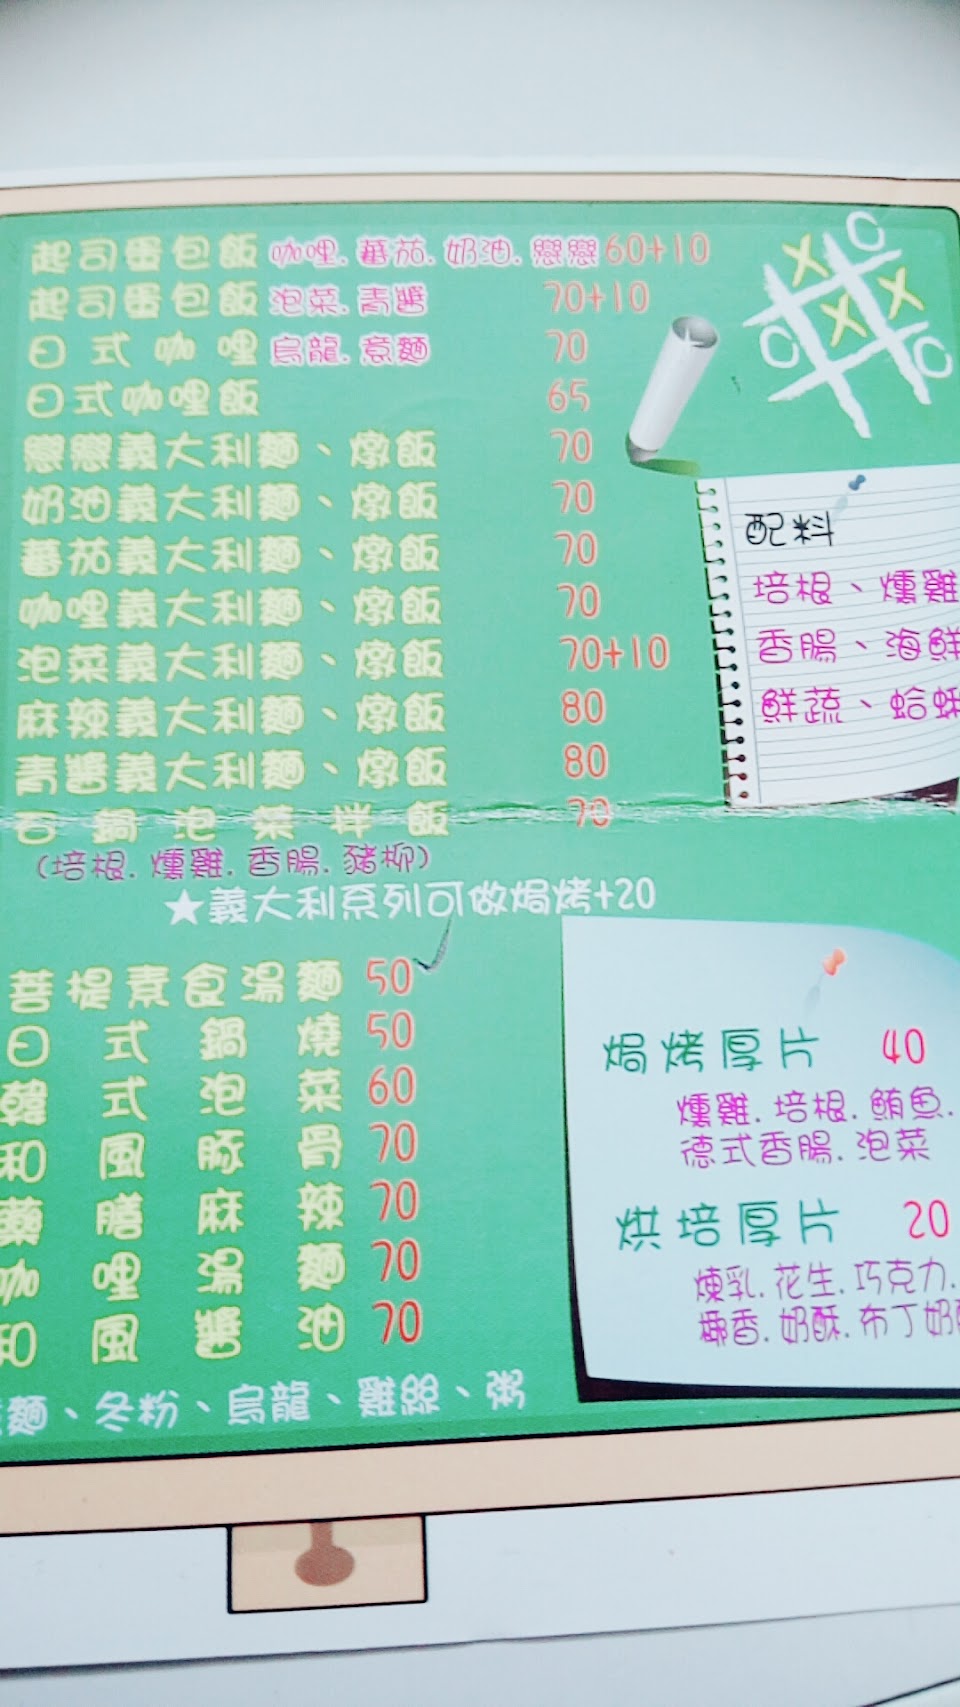 起司蛋包飯 咖哩.蕃茄.奶油.戀戀 60+10
起司蛋包飯 泡菜.青醬 70+10
日式咖哩 烏龍.意麵 70
日式咖哩飯 65
戀戀義大利麵、燉飯 70
奶油義大利麵、燉飯 70
蕃茄義大利麵、燉飯 70
咖哩義大利麵、燉飯 70
泡菜義大利麵、燉飯 70+10
麻辣義大利麵、燉飯 80
青醬義大利麵、燉飯 80
石鍋泡菜拌飯 70
(培根.燻雞.香腸.豬柳)
★義大利系列可做焗烤+20
菩提素食湯麵 50
日式鍋燒 50
韓式泡菜 60
和風豚骨 70
藥膳麻辣 70
咖哩湯麵 70
和風醬油 70
麵、冬粉、烏龍、雞絲、粥
配料
培根、燻雞
香腸、海鮮
鮮蔬、蛤
焗烤厚片 40
燻雞.培根.鮪魚.
德式香腸.泡菜
烘培厚片 20
煉乳.花生.巧克力.
椰香.奶酥.布丁奶